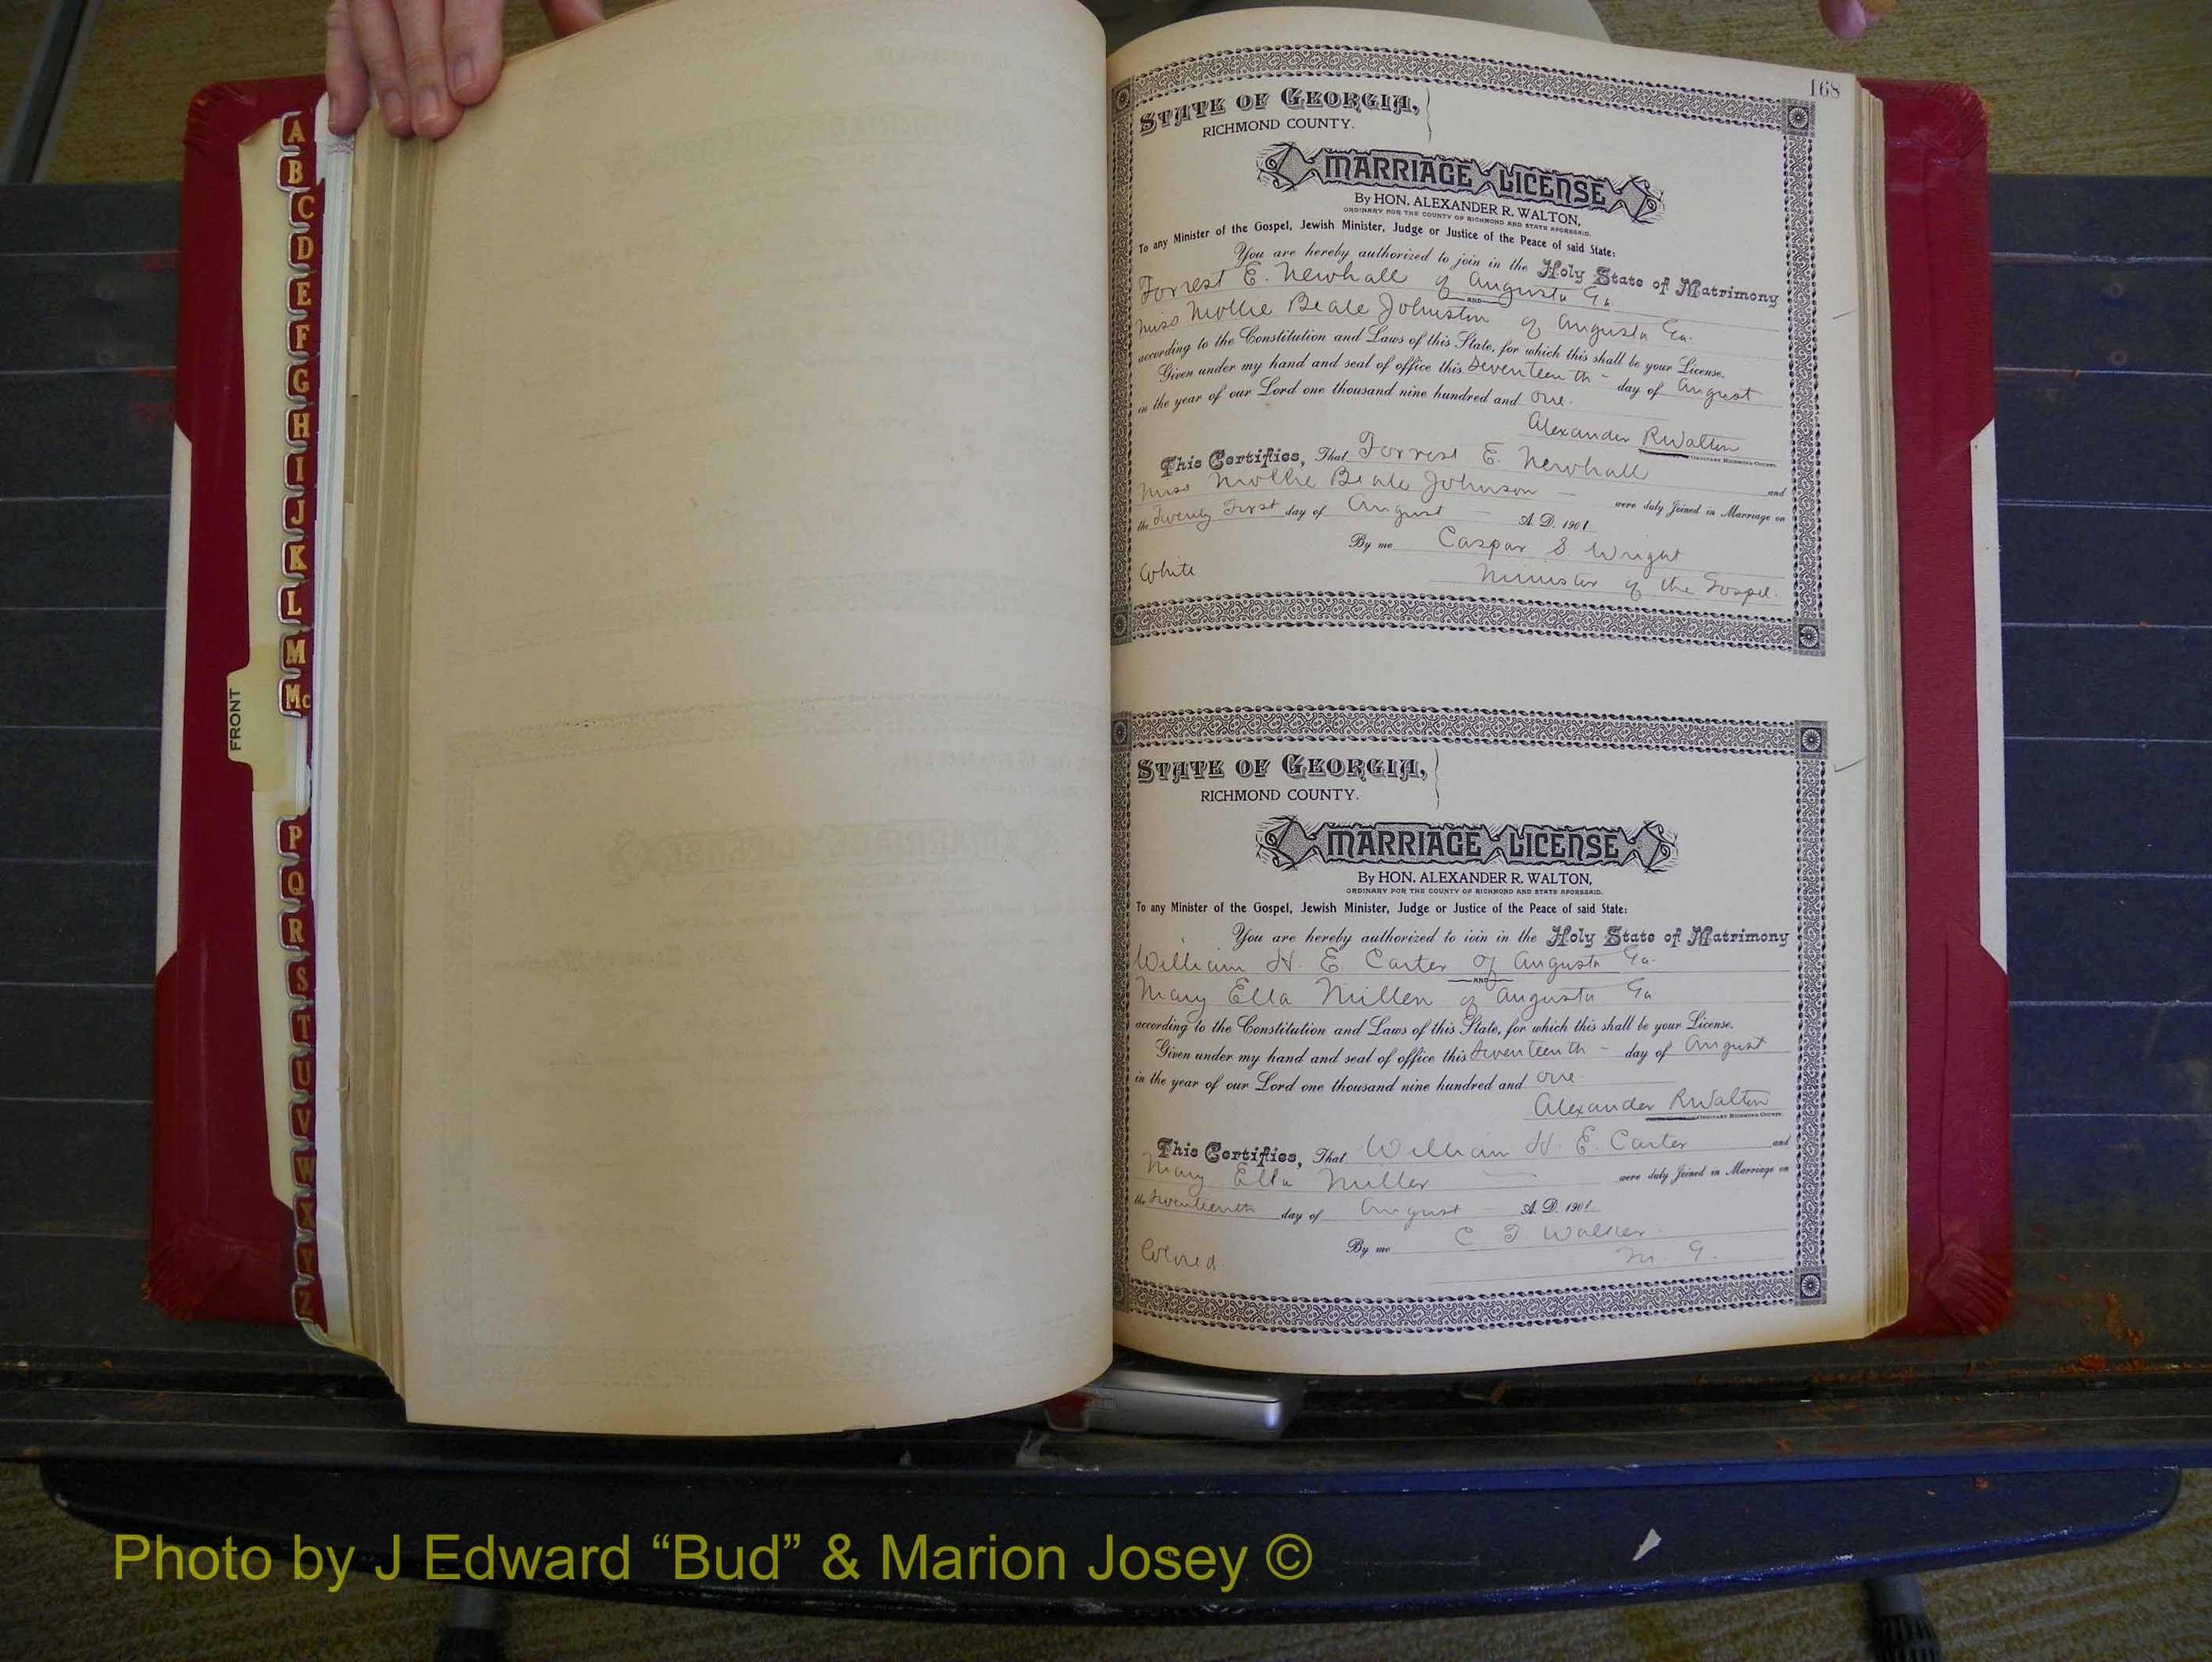 A
B
C
D
E
F
G
H
I
J
K
L
M
Mc
FRONT
P
Q
R
S
T
U
V
W
X
Y
Z
168
STATE OF GEORGIA,
RICHMOND COUNTY.
MARRIAGE LICENSE
By HON. ALEXANDER R. WALTON,
ORDINARY FOR THE COUNTY OF RICHMOND AND STATE AFORESAID.
To any Minister of the Gospel, Jewish Minister, Judge or Justice of the Peace of said State:
You are hereby authorized to join in the Holy State of Matrimony
Forrest E. Newhall of Augusta Ga.
AND
Miss Mollie Beale Johnston of Augusta Ga.
according to the Constitution and Laws of this State, for which this shall be your License.
Given under my hand and seal of office this Seventeenth - day of August
in the year of our Lord one thousand nine hundred and One.
Alexander R Walton
ORDINARY RICHMOND COUNTY.
This Certifies, That Forrest E. Newhall and
Miss Mollie Beale Johnson — were duly Joined in Marriage on
the Twenty First day of August — A. D. 1901
By me Caspar S. Wright
White Minister of the Gospel.
STATE OF GEORGIA,
RICHMOND COUNTY.
MARRIAGE LICENSE
By HON. ALEXANDER R. WALTON,
ORDINARY FOR THE COUNTY OF RICHMOND AND STATE AFORESAID.
To any Minister of the Gospel, Jewish Minister, Judge or Justice of the Peace of said State:
You are hereby authorized to join in the Holy State of Matrimony
William H. E. Carter of Augusta Ga.
AND
Mary Ella Miller of Augusta Ga
according to the Constitution and Laws of this State, for which this shall be your License.
Given under my hand and seal of office this Seventeenth - day of August
in the year of our Lord one thousand nine hundred and One.
Alexander R Walton
ORDINARY RICHMOND COUNTY.
This Certifies, That William H. E. Carter and
Mary Ella Miller — were duly Joined in Marriage on
the Seventeenth day of August — A. D. 1901
By me C T Walker
Colored. M. G.
Photo by J Edward “Bud” & Marion Josey ©